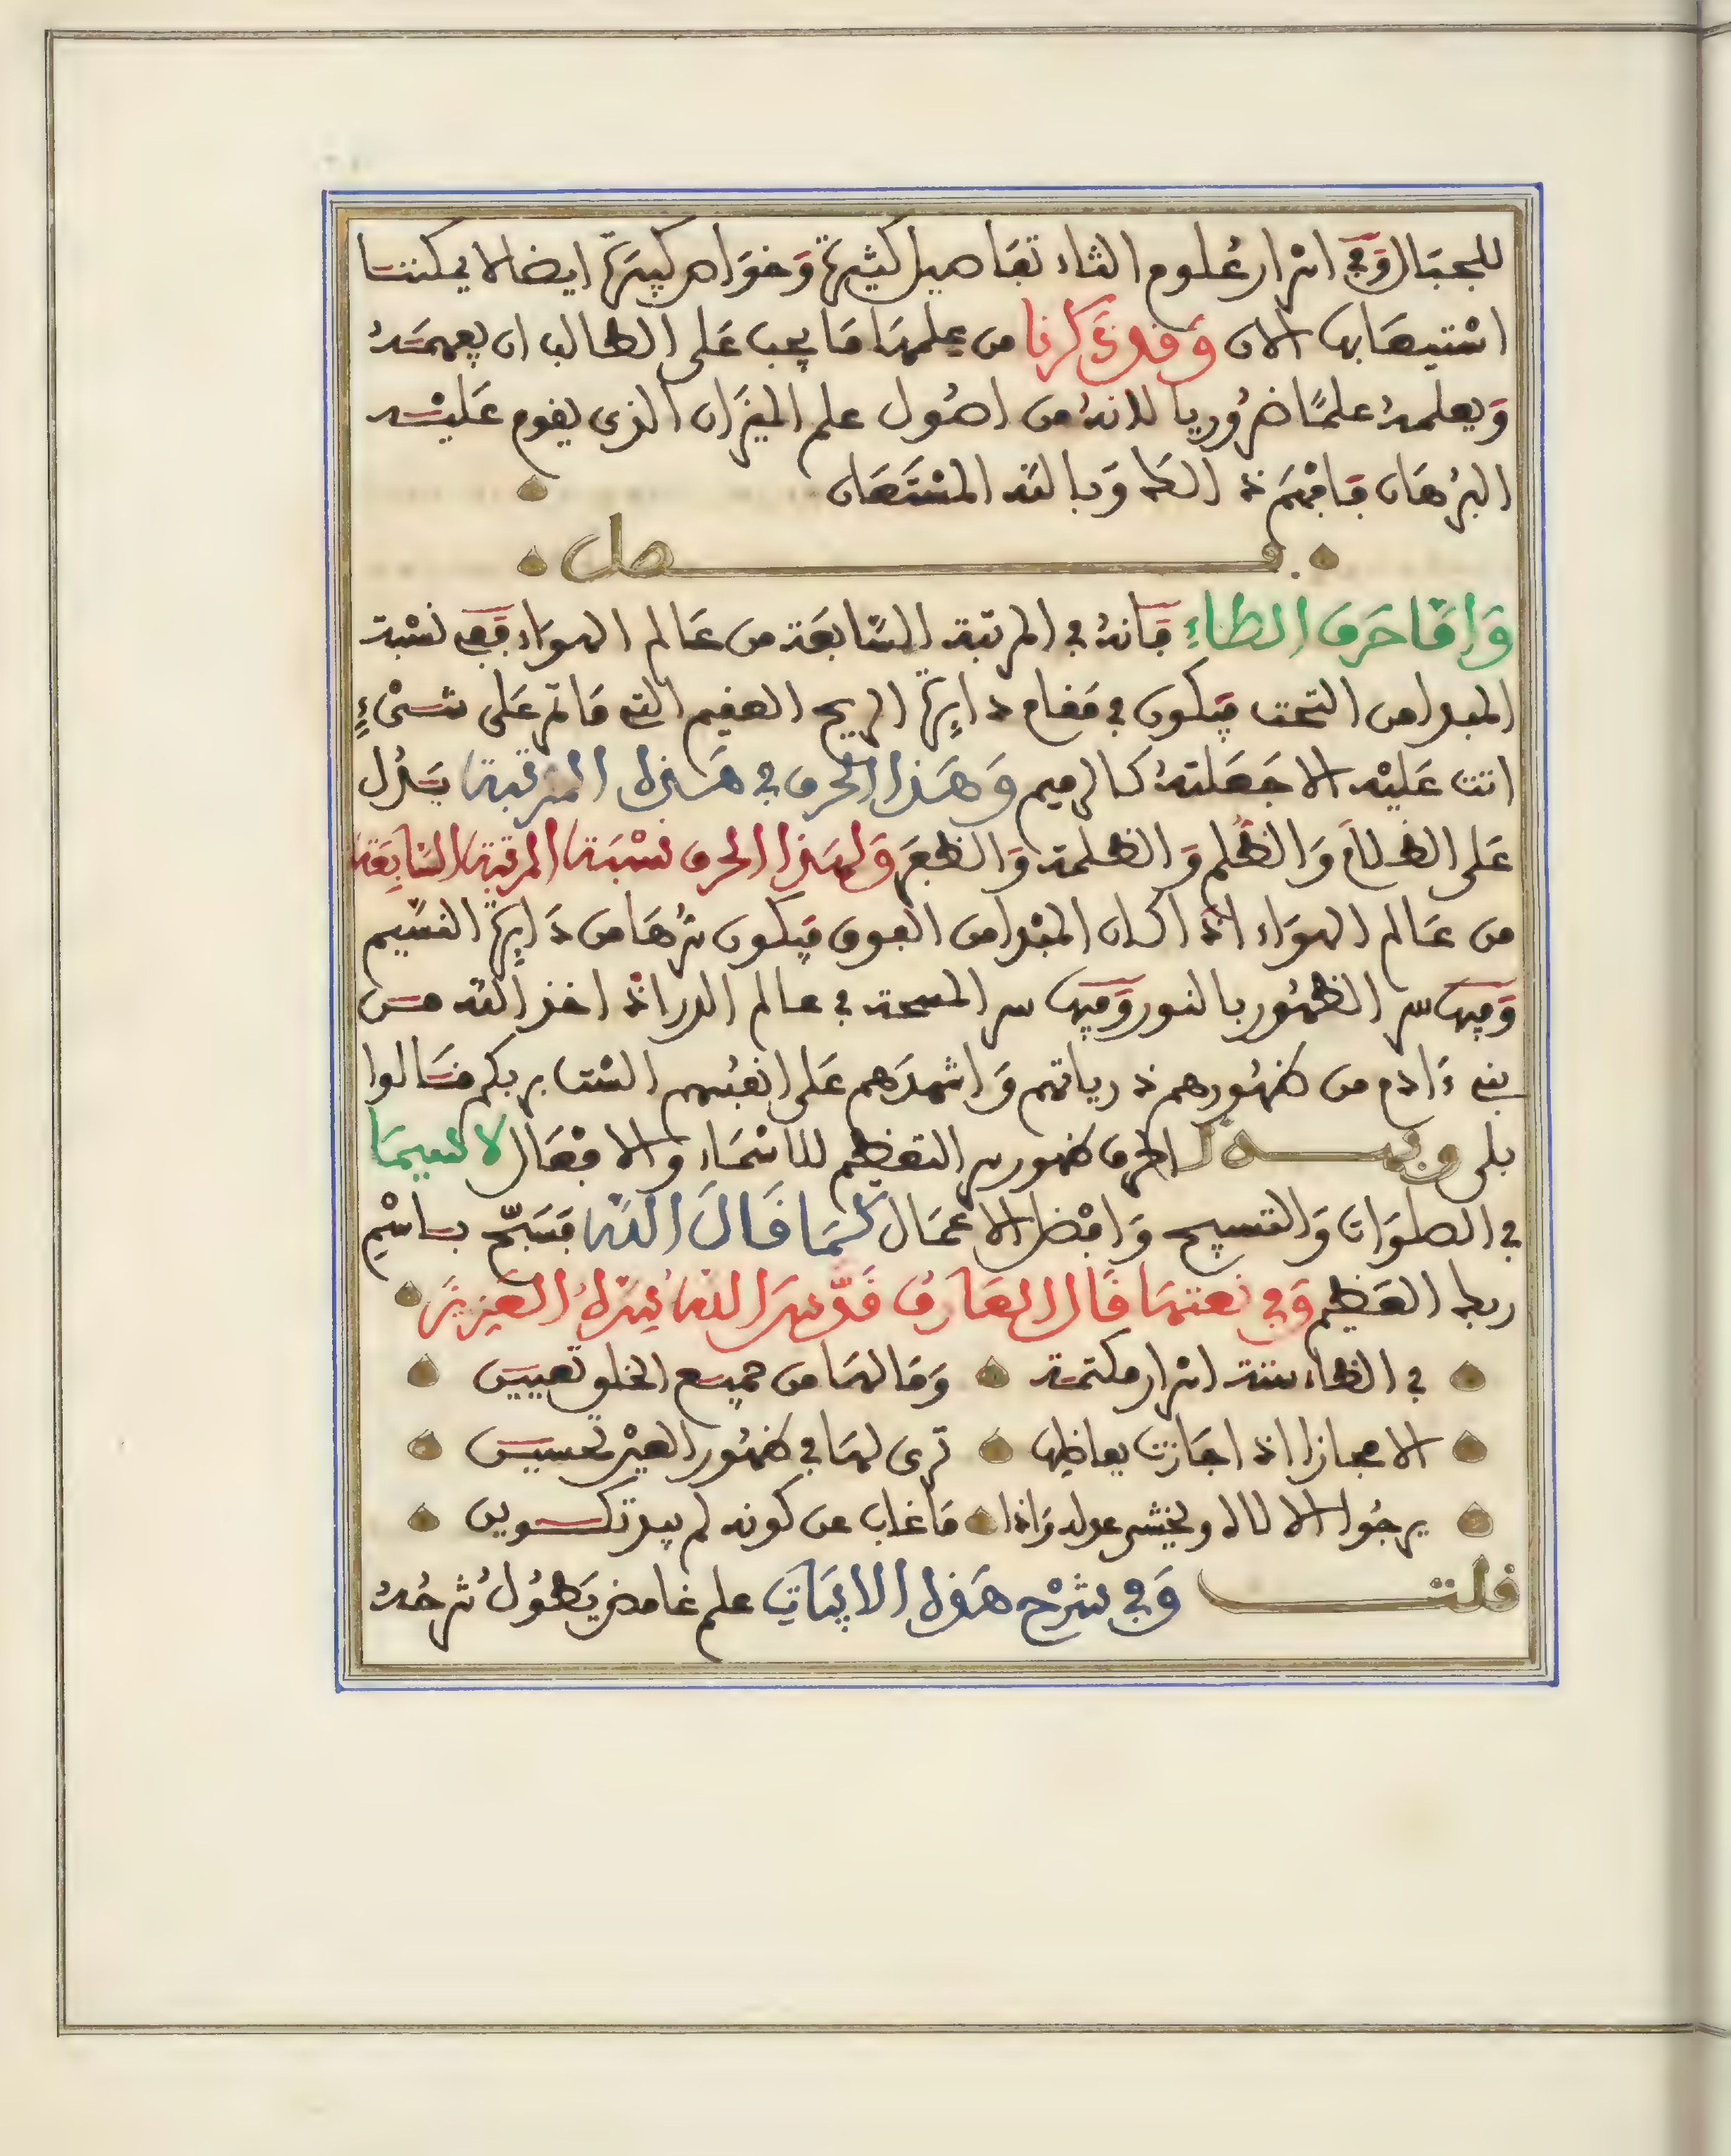 للجبال وفي اسرار علوم الثاء تفاصيل كثيرة وخواص كبيرة ايضا لا يمكننا
استيعابها الان وقد ذكرنا من علمها ما يجب على الطالب ان يفهمه
ويعلمه علمًا ضروريا لانه من اصول علم الميزان الذي يقوم عليه
البرهان فافهم ذالك وبالله المستعان
فصل
واما حرف الظاء فانه في المرتبة السابعة من عالم الهواء ففي نسبة
المبدا من التحت فيكون في مقام دايرة الريح العقيم التي ما تمر على شيءٍ
اتت عليه الا جعلته كالرميم وهذا الحرف في هذه المرتبة يدل
على الظلام والظلم والظلمة والظفر ولهذا الحرف نسبة المرتبة السابعة
من عالم الهواء اذا كان المبدا من الفوق فيكون سرها من دايرة النسيم
وفيها سر الظهور بالنور وفيها سر المسحة في عالم الذر اذ اخذ الله من
بني ءادم من ظهورهم ذرياتهم واشهدهم على انفسهم الست بربكم قالوا
بلى وبهذا الحرف ظهور سر التعظيم للاسماء والافعال لا سيما
في الصلوات والتسبيح وافضل الاعمال كما قال الله فسبّح باسم
ربك العظيم وفي نعتها قال العارف قدّس الله سره العزيز
في الظاء ستة اسرار مكتمة وما لها من جميع الخلق تعيين
الا مجازا اذا جازت بعاظها ترى لها في ظهور العين تحسين
يرجوا الالاله ويخشى عدله واذا ما غاب عن كونه لم يبد تكوين
قلت وفي شرح هذه الابيات علم غامض يطول شرحه